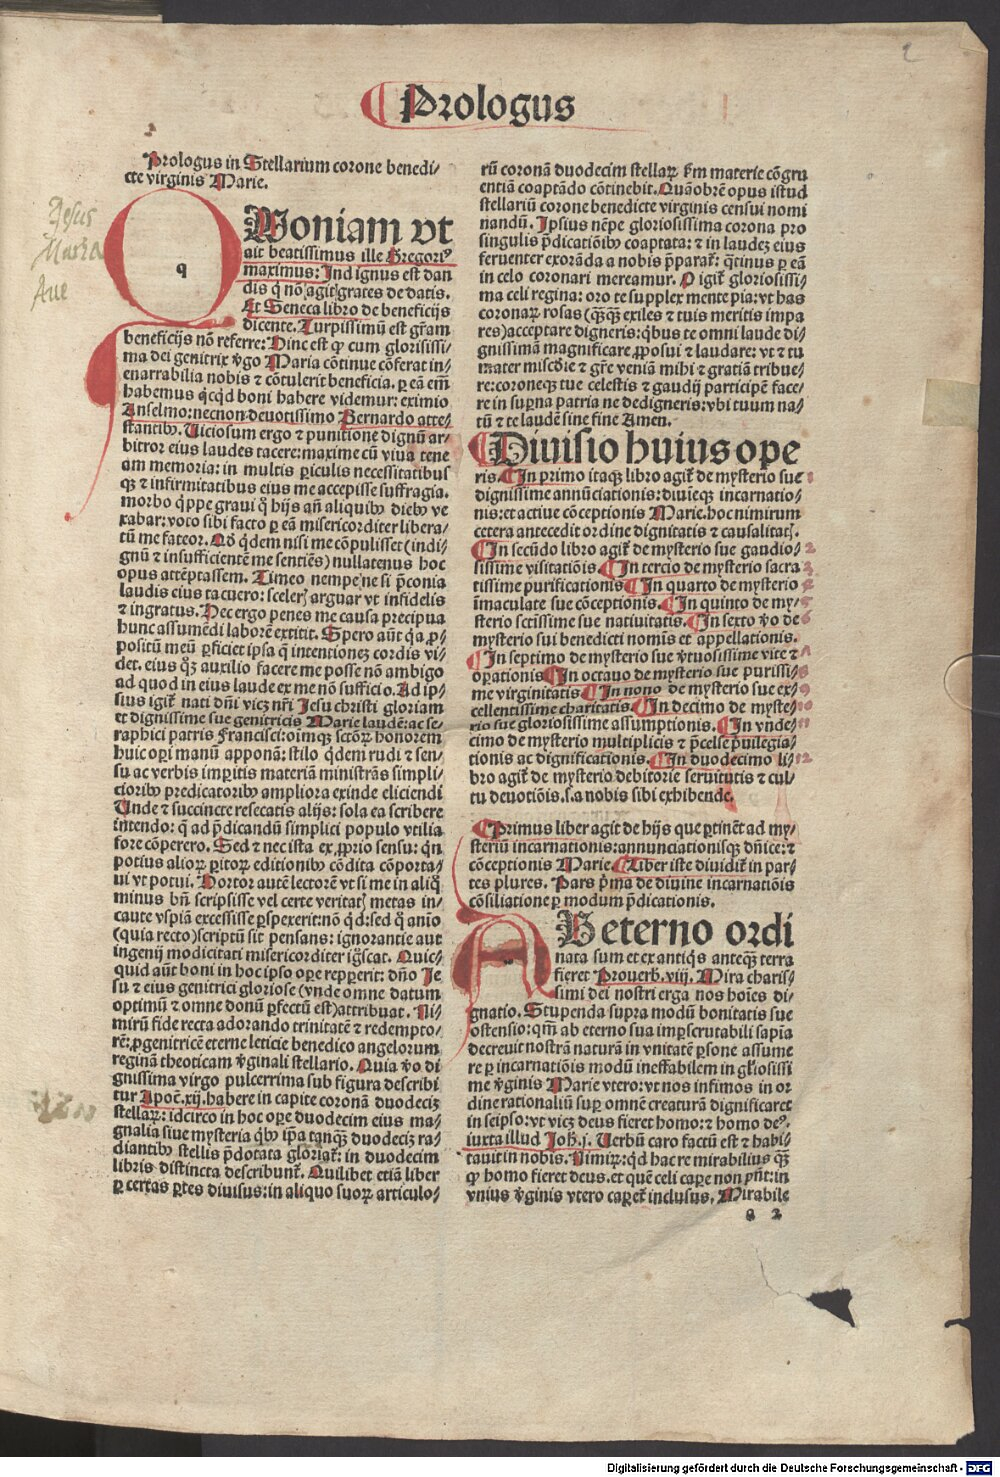 2
Prologus
Prologus in Stellarium corone benedi-
cte virginis Marie.
Jesus
Maria
Ave
q
QVoniam vt
ait beatissimus ille Gregoriꝰ
maximus: Indignus est dan
dis q̄ nō agit grates de datis.
Et Seneca libro de beneficijs
dicente. Turpissimū est gr̄am
beneficijs nō referre: Hinc est ꝙ cum glorisissi-
ma dei genitrix v̄go Maria cōtinue cōferat in-
enarrabilia nobis ⁊ cōtulerit beneficia. ꝑ eā em̄
habemus q̇cqd boni habere videmur: eximio
Anselmo: necnon deuotissimo Bernardo atte-
stantibꝰ. Uiciosum ergo ⁊ punitione dignū ar-
bitror eius laudes tacere: maxime cū viua tene
am memoria: in multis ꝑiculis necessitatibus
qꝫ ⁊ infirmitatibus eius me accepisse suffragia.
morbo q̇ppe graui q̄ hijs an̄ aliquibꝰ diebꝰ ve
xabar: voto sibi facto ꝑ eā misericorditer libera-
tū me fateor. Qd̓ q̇dem nisi me cōpulisset (indi-
gnū ⁊ insufficientē me sentiēs) nullatenus hoc
opus attēptassem. Timeo nempe ne si p̄conia
laudis eius tacuero: scelerꝫ arguar vt infidelis
⁊ ingratus. Hec ergo penes me causa precipua
hunc assumēdi laborē extitit. Spero aūt q̇a ꝓ-
positū meū ꝑficiet ipsa q̄ intentionez cordis vi-
det. eius qꝫ auxilio facere me posse nō ambigo
ad quod in eius laude ex me nō sufficio. Ad ip-
sius igit̄ nati dn̄i vicꝫ nr̄i Jesu christi gloriam
et dignissime sue genitricis Marie laudē: ac se-
raphici patris Francisci: oīmqꝫ sctōꝝ honorem
huic oꝑi manū apponā: stilo q̇dem rudi ⁊ sen-
su ac verbis imꝑitis materiā ministrās simpli-
cioribꝰ predicatoribꝰ ampliora exinde eliciendi
Unde ⁊ succincte resecatis alijs: sola ea scribere
intendo: q̄ ad p̄dicandū simplici populo vtilia
fore cōperero. Sed ⁊ nec ista ex ꝓprio sensu: qn̄
potius alioꝝ ꝑitoꝝ editionibꝰ cōdita cōporta-
ui vt potui. Hortor autē lectorē vt si me in aliq̊
minus bn̄ scripsisse vel certe veritatꝫ metas in-
caute vspiā excessisse ꝑspexerit: nō q̇d: sed q̊ anīo
(quia recto) scriptū sit pensans: ignorantie aut
ingenij modicitati misericorditer ignscat. Quic-
quid aūt boni in hoc ipso oꝑe repꝑerit: dn̄o Je
su ⁊ eius genitrici gloriose (vnde omne datum
optimū ⁊ omne donū ꝑfectū est) attribuat. Ni-
mirū fide recta adorando trinitatē ⁊ redempto-
rē: ꝓgenitricē eterne leticie benedico angelorum
reginā theoticam v̄ginali stellario. Quia v̊o di
gnissima virgo pulcerrima sub figura describi
tur Apoc̄. xij. habere in capite coronā duodecꝫ
stellaꝝ: idcirco in hoc oꝑe duodecim eius ma-
gnalia siue mysteria q̇bꝰ ip̄a tanqꝫ duodecꝫ ra-
diantibꝰ stellis p̄dotata gloriat̄: in duodecim
libris distincta describunt̄. Quilibet etiā liber
ꝑ certas ꝑtes diuisus: in aliquo suoꝝ articulo-
rū coronā duodecim stellaꝝ ẜm materie cōgru
entiā coaptādo cōtinebit. Quāobrē opus istud
stellariū corone benedicte virginis censui nomi
nandū. Ipsius nēpe gloriosissima corona pro
singulis p̄dicatiōibꝰ coaptata: ⁊ in laudeꝫ eius
feruenter exorāda a nobis p̄parat̄: q̇tinus ꝑ eā
in celo coronari mereamur. O igit̄ gloriosissi-
ma celi regina: oro te supplex mente pia: vt has
coronaꝝ rosas (q̄ꝫqꝫ exiles ⁊ tuis meritis impa
res) acceptare digneris: q̇bus te omni laude di-
gnissimā magnificare ꝓposui ⁊ laudare: vt ⁊ tu
mater miscd̓ie ⁊ gr̄e veniā mihi ⁊ gratiā tribue-
re: coroneqꝫ tue celestis ⁊ gaudij participē face-
re in suꝑna patria ne dedigneris: vbi tuum na-
tū ⁊ te laudē sine fine Amen.
Diuisio huius ope
ris. In primo itaqꝫ libro agit̄ de mysterio sue 1
dignissime annūciationis: diuieqꝫ incarnatio-
nis: et actiue cōceptionis Marie. hoc nimirum
cetera antecedit ordine dignitatis ⁊ causalitatꝫ.
In secūdo libro agit̄ de mysterio sue gaudio- 2
sissime visitatiōis. In tercio de mysterio sacra 3
tissime purificationis. In quarto de mysterio 4
īmaculate sue cōceptionis. In quinto de my- 5
sterio sctissime sue natiuitatis. In sexto v̊o de 6
mysterio sui benedicti nomīs et appellationis.
In septimo de mysterio sue v̄tuosissime vite ⁊ 7
oꝑationis. In octauo de mysterio sue purissi- 8
me virginitatis. In nono de mysterio sue ex- 9
cellentissime charitatis. In decimo de myste- 10
rio sue gloriosissime assumptionis. In vnde- 11
cimo de mysterio multiplicis ⁊ p̄celse p̄uilegia-
tionis ac dignificationis. In duodecimo li- 12
bro agit̄ de mysterio debitorie seruitutis ⁊ cul-
tu deuotiōis. s. a nobis sibi exhibende.
Primus liber agit de hijs que ꝑtinēt ad my-
steriū incarnationis: annunciationisqꝫ dn̄ice: ⁊
cōceptionis Marie. Liber iste diuidit̄ in par-
tes plures. Pars p̄ma de diuine incarnatiōis
cōsiliatione ꝑ modum p̄dicationis.
AB eterno ordi
nata sum et ex antiq̇s anteqꝫ terra
fieret Prouerb. viij. Mira charis-
simi dei nostri erga nos hoīes di-
gnatio. Stupenda supra modū bonitatis sue
ostensio: qm̄ ab eterno sua imꝑscrutabili sapīa
decreuit nostrā naturā in vnitatē ꝑsone assume
re ꝑ incarnatiōis modū ineffabilem in gl̓iosissi
me v̄ginis Marie vtero: vt nos infimos in or
dine rationaliū suꝑ omnē creaturā dignificaret
in seipso: vt vicꝫ deus fieret homo: ⁊ homo deꝰ.
iuxta illud Joh̄. j. Uerbū caro factū est ⁊ habi-
tauit in nobis. Nimiꝝ: q̇d hac re mirabilius qꝫ
ꝙ homo fieret deus. et quē celi caꝑe non pn̄t: in
vnius v̄ginis vtero caꝑet̄ inclusus. Mirabile
a 2
Digitalisierung gefördert durch die Deutsche Forschungsgemeinschaft - DFG